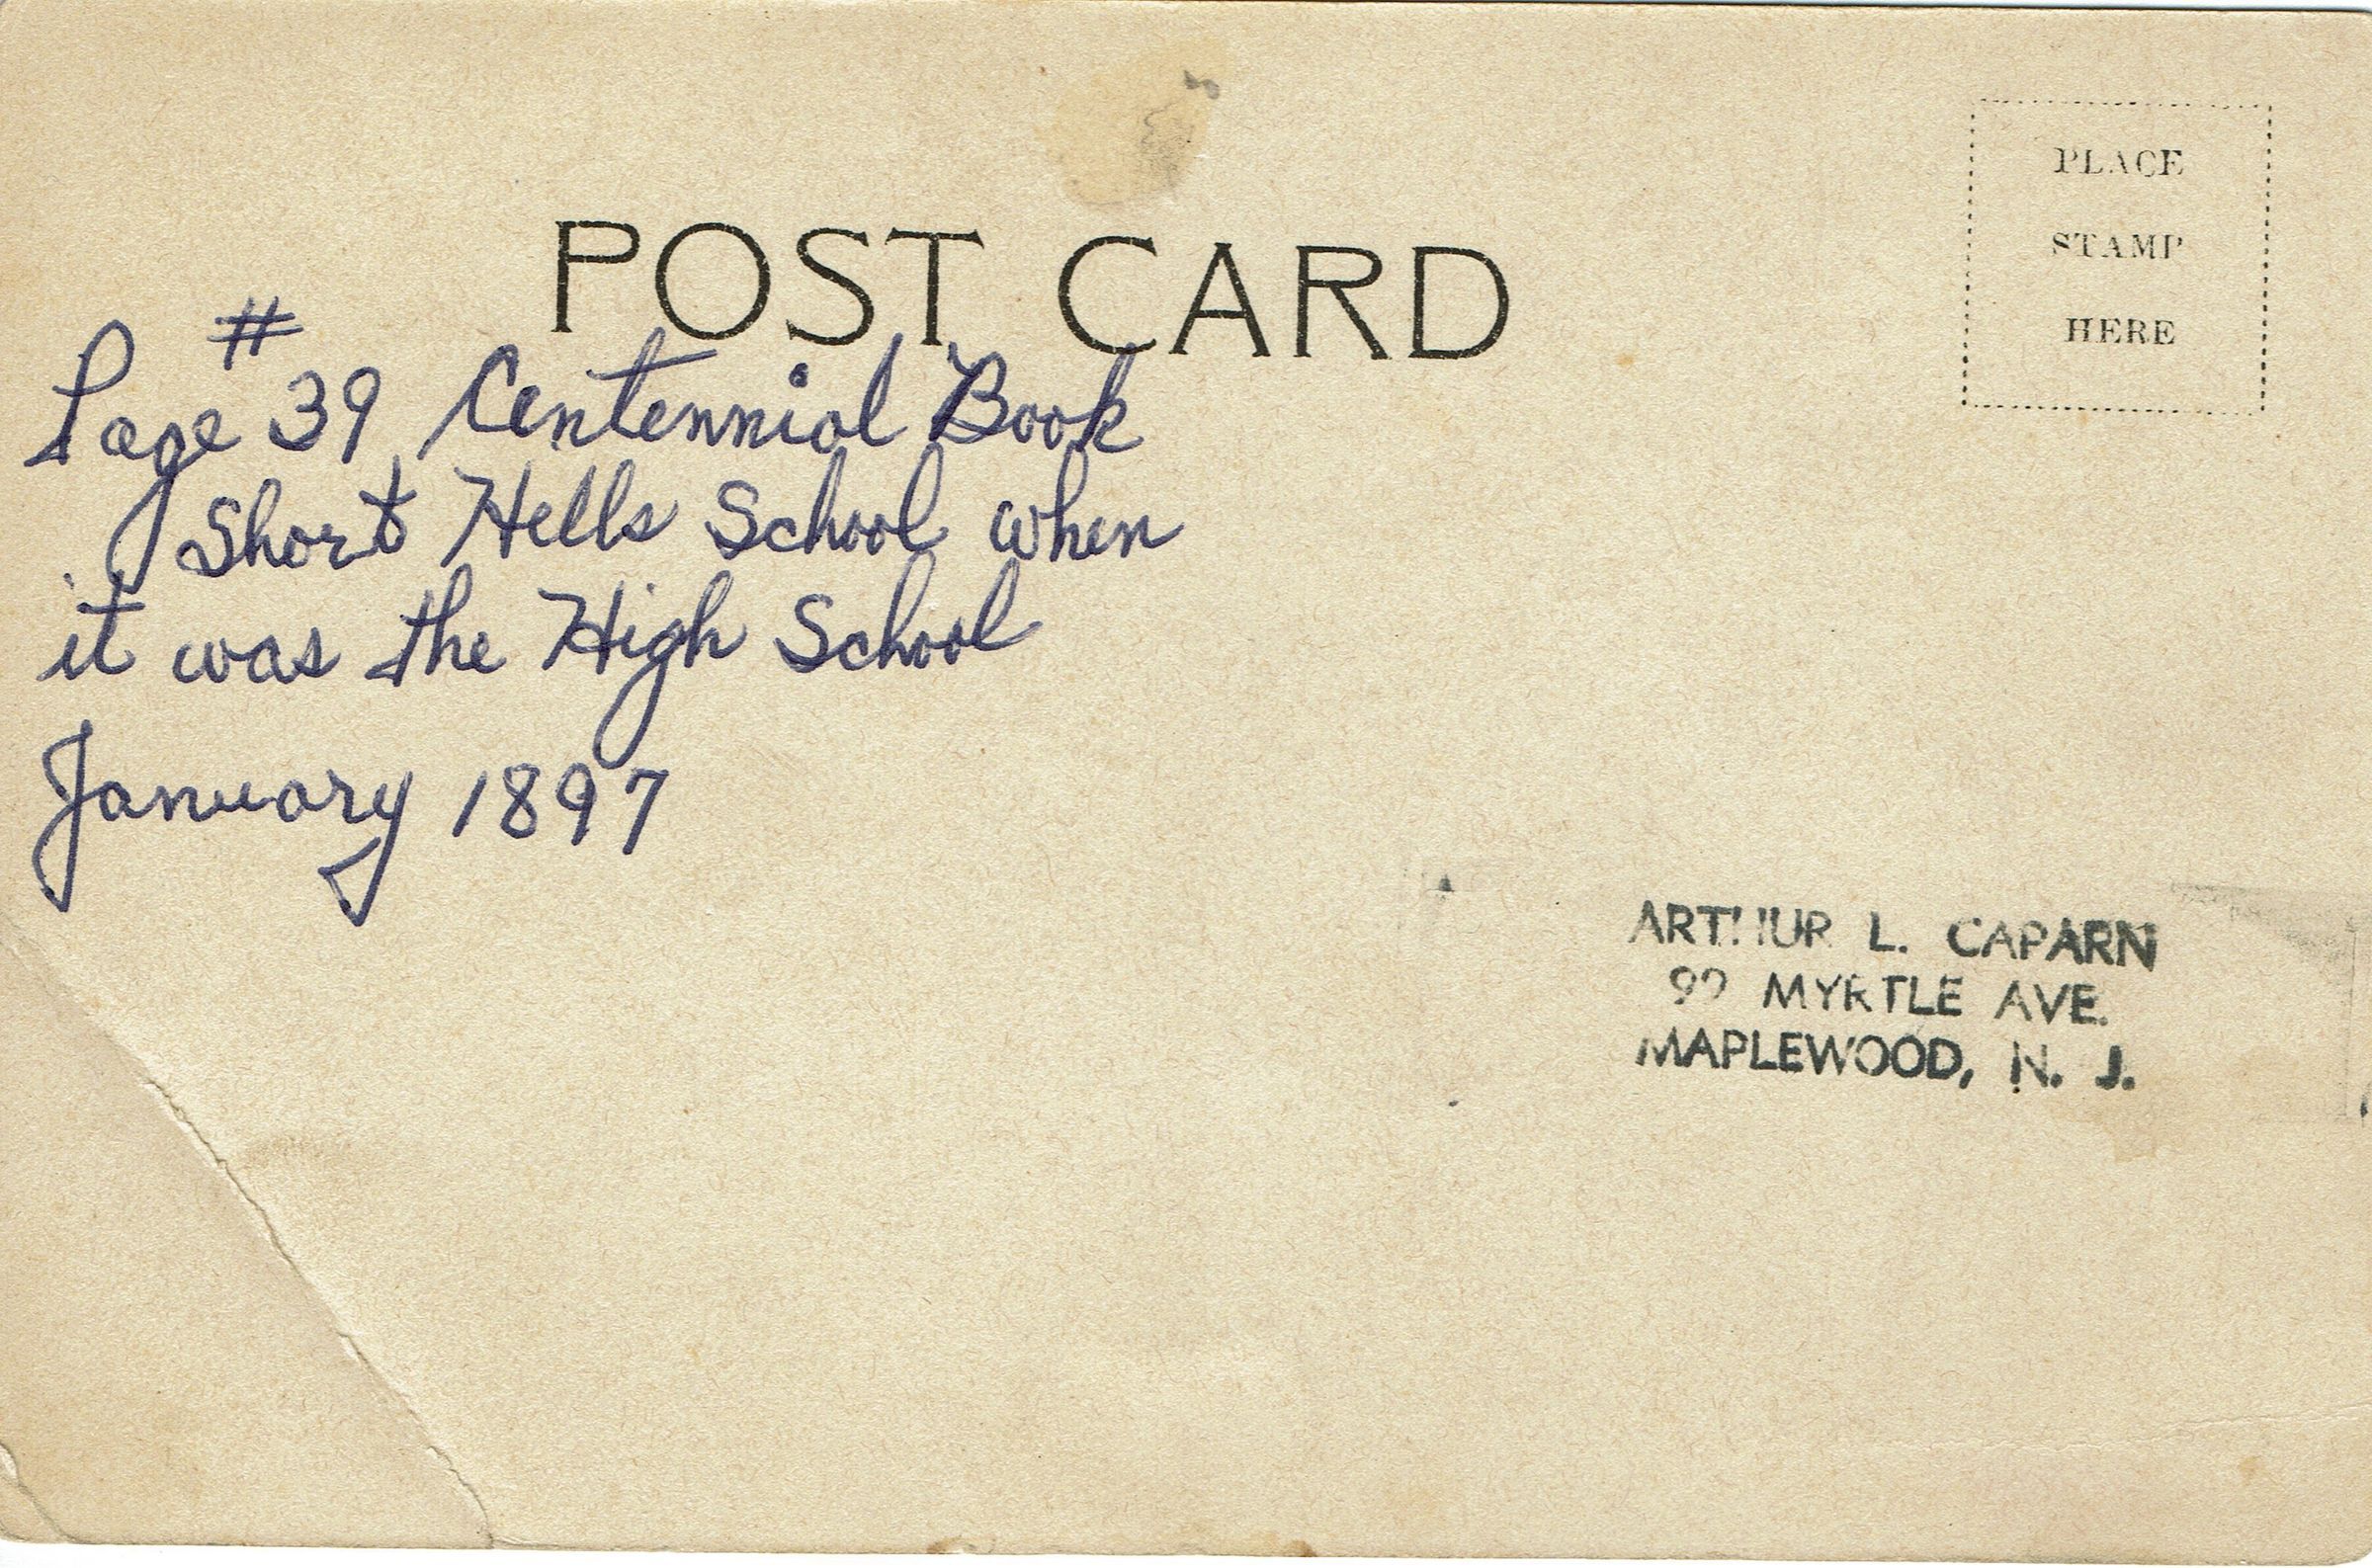 POST CARD
PLACE
STAMP
HERE
Page # 39 Centennial Book
Short Hills School when
it was the High School
January 1897
ARTHUR L. CAPARN
MYRTLE AVE.
MAPLEWOOD, N. J.